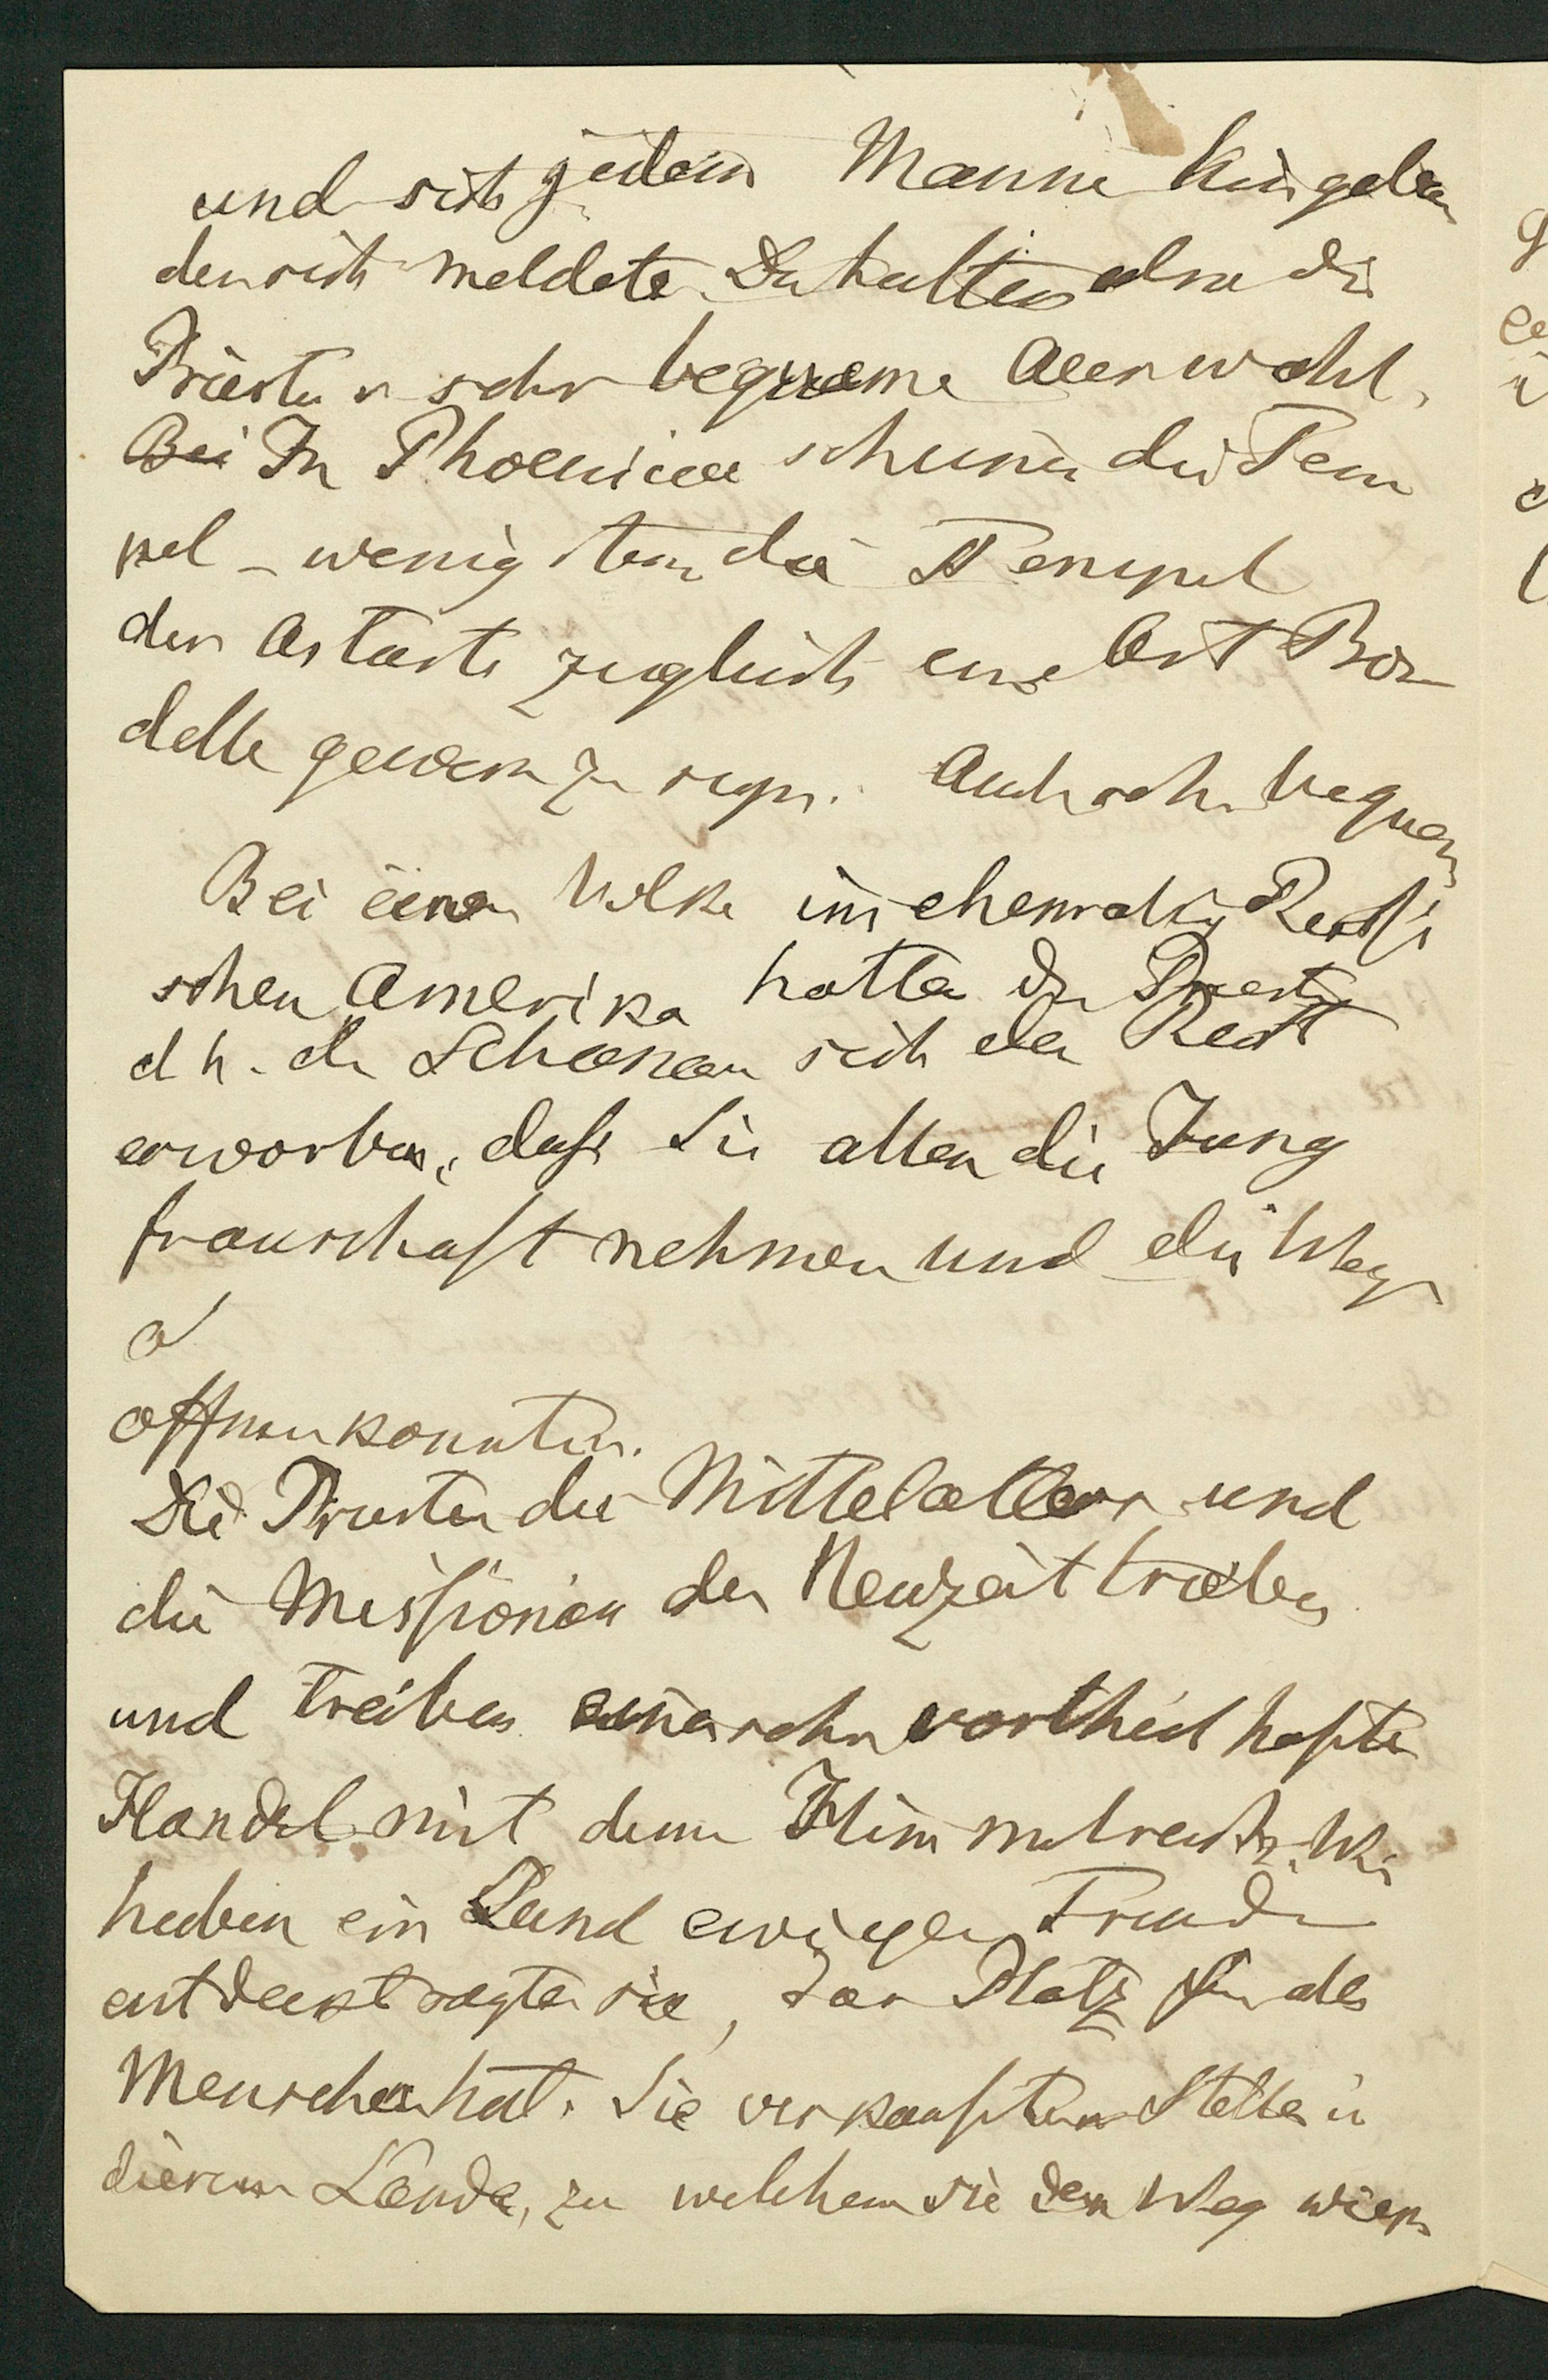 und sich jedem Manne hingeben
der sich meldete. Da hatten also die
Priester sehr bequeme Auswahl.
Bei In Phoenicia scheinen die Tem
pel - wenigstens die Tempel
der Astarte zugleich eine Art Bor
delle gewesen zu sein. Auch sehr bequem
Bei einem Volke im ehemalig Russi
schen Amerika hatten die Priester
d h. die Schamanen sich das Recht
erworben, dass sie allen die Jung
frauschaft nehmen und die Wege
a
öffnen konnten.
Die Priester des Mittelalters und
die Missionen der Neuzeit trieben
und treiben einen sehr vortheilhaften
Handel mit dem Himmelreich. Wir
haben ein Land ewiger Freude
entdeckt sagten sie, das Platz für alle
Menschen hat. Sie verkauften Stellen in
diesem Lande, zu welchem sie den Weg wiesen